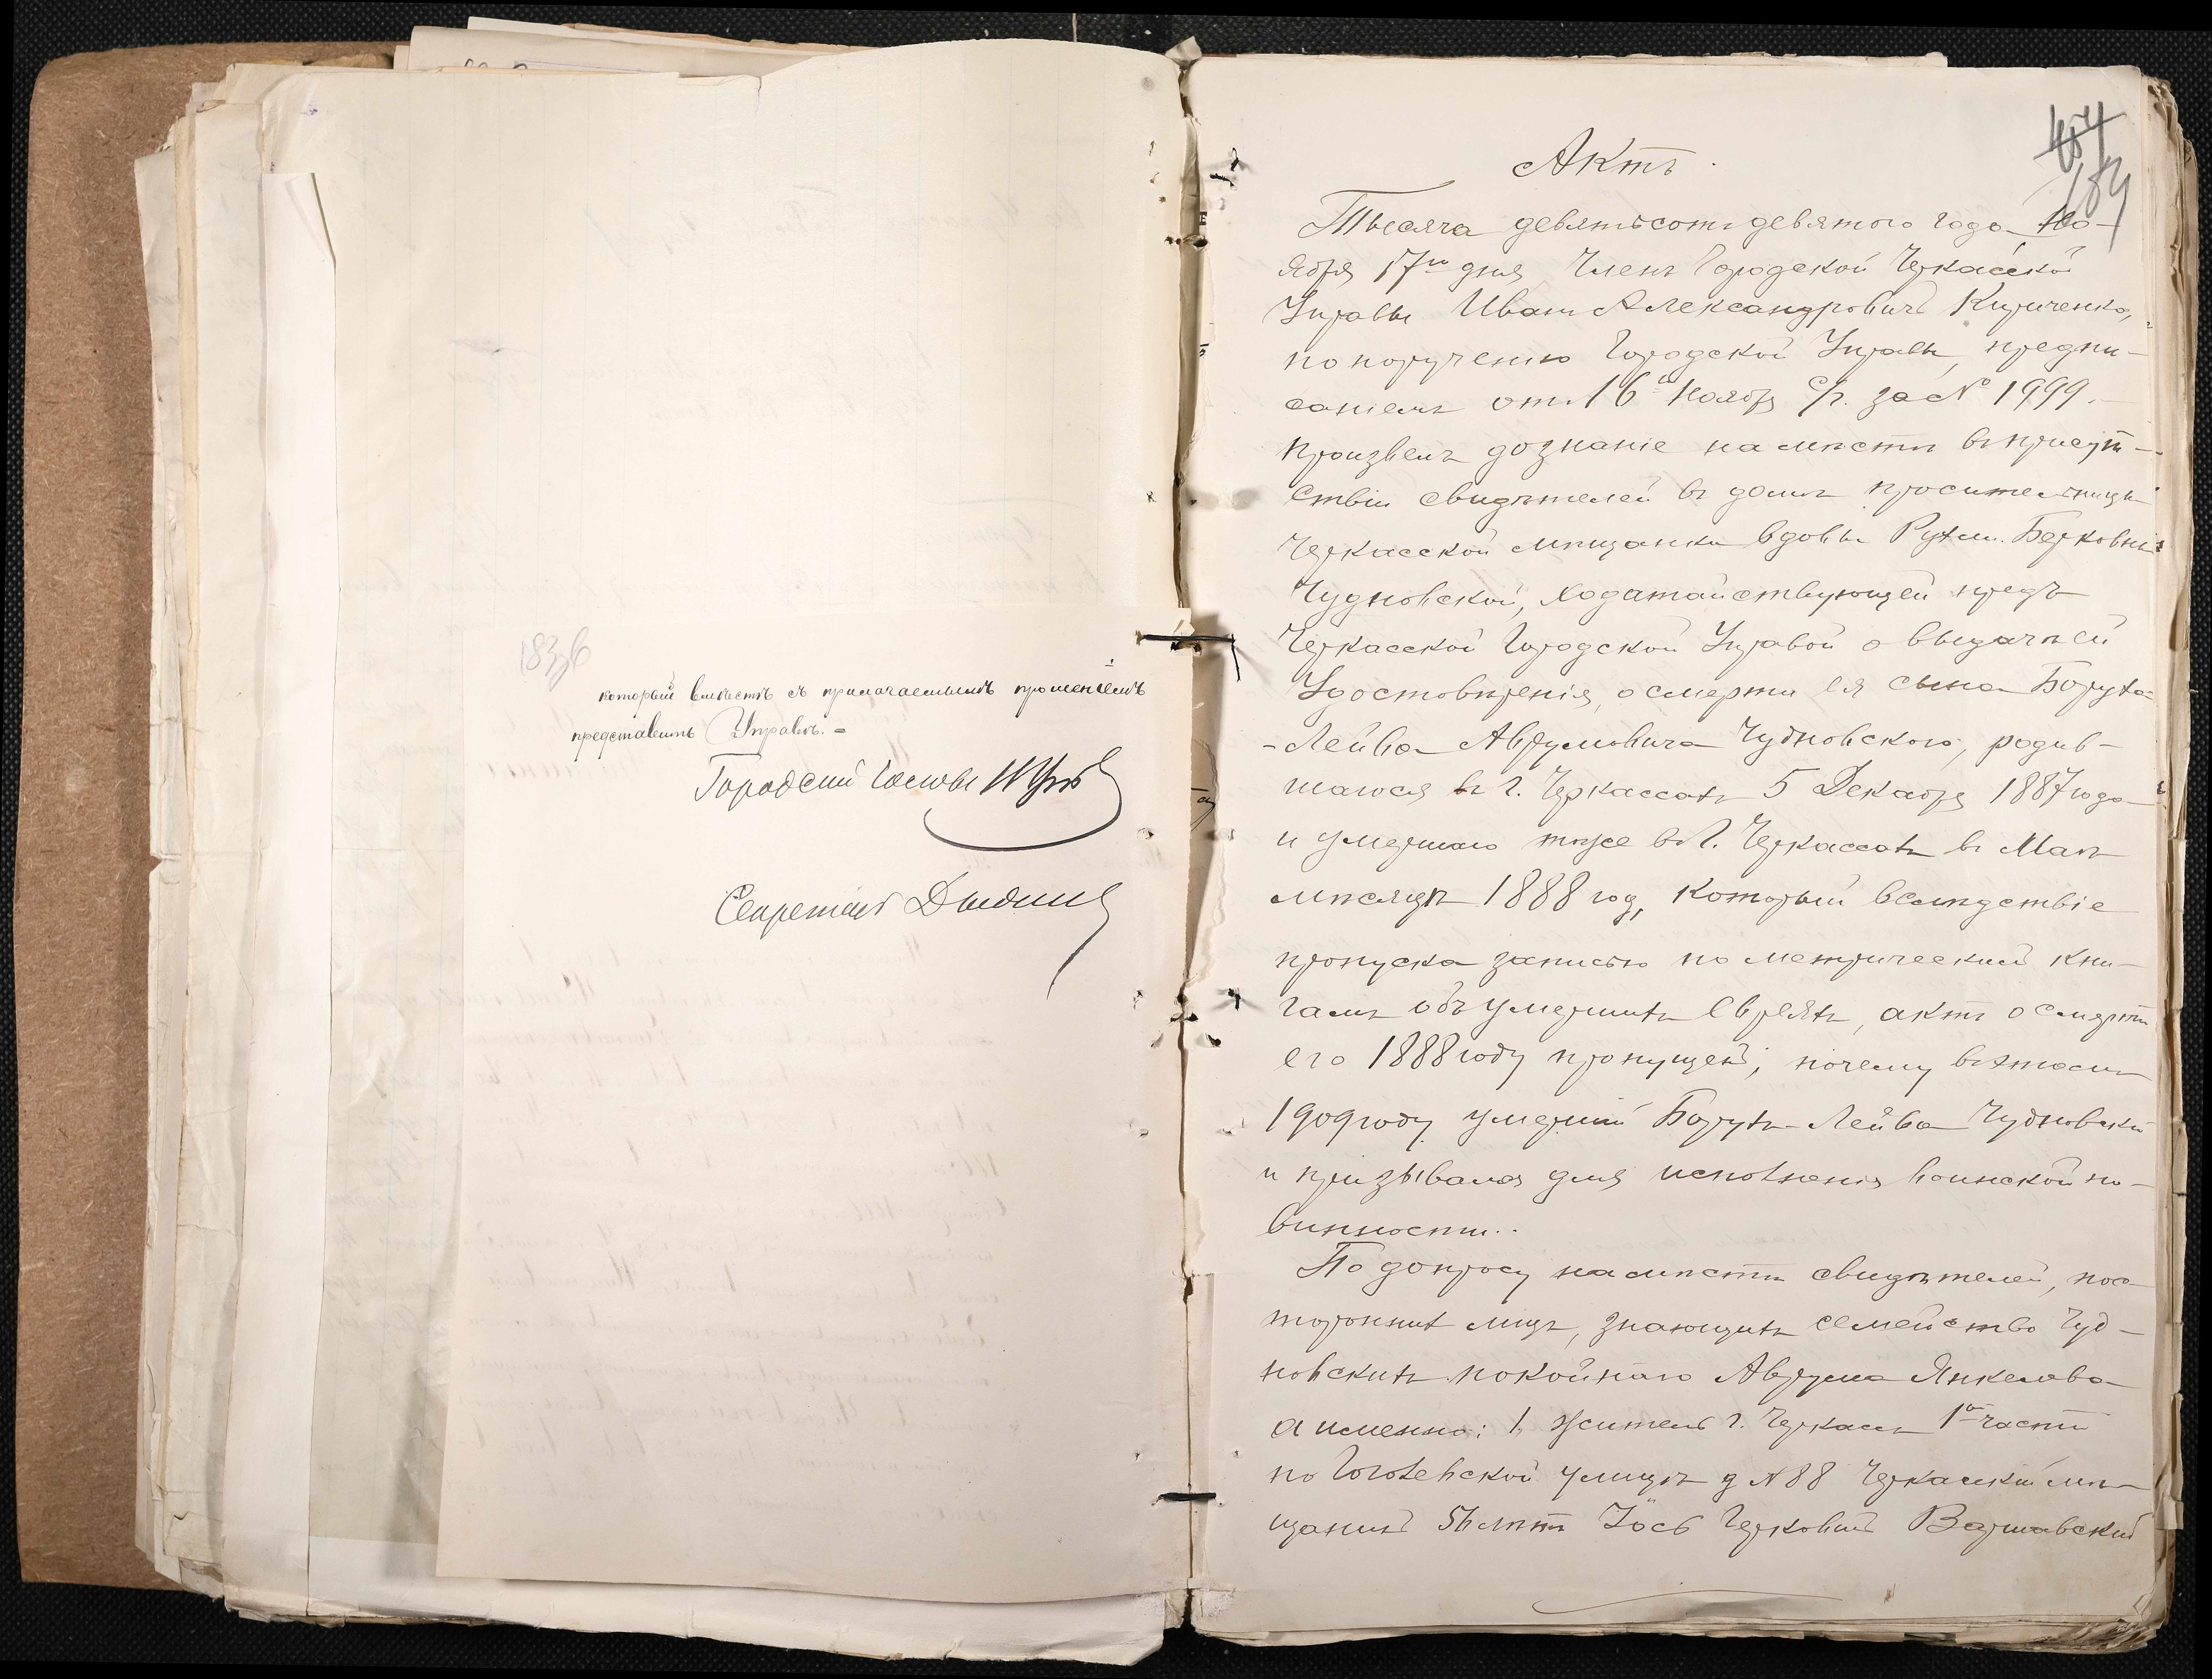 183об
который вместѣ съ прилагаемымъ прошеніемъ
представить Управѣ. =
Городской Голова
Секретарь
184
Актъ.
Тысяча девятьсотъ девятого года Но-
ября 17го дня Членъ Городской Черкасской
Управы Иванъ Александровичъ Кириченко,
по порученію Городской Управы, предпи-
саніемъ отъ 16го Ноября с/г. за № 1999.
произвелъ дознаніе на мѣстѣ въ присут-
ствіи свидѣтелей въ домѣ просительницы
Черкасской мѣщанки вдовы Рухли Берковны
Чудновской, ходатайствующей предъ
Черкасской Городской Управой о выдачѣ ей
Удостовѣренія, о смерти ея сына Боруха-
-Лейва Аврумовича Чудновского, родив-
шагося въ г. Черкассахъ 5 Декабря 1887 года
и умершаго тоже въ г. Черкассахъ въ Маѣ
мѣсяцѣ 1888 год, который вслѣдствіе
пропуска записью по метрическимъ кни-
гамъ объ умершихъ евреяхъ, актъ о смерти
его 1888 году пропущенъ, почему въ этомъ
1909 году умершій Борухъ-Лейва Чудновскій
и призывался для исполненія воинской по-
винности..
По допросу на мѣстѣ свидѣтелей, пос-
тороннихъ лицъ, знающихъ семейство Чуд-
новскихъ покойнаго Аврума Янкелева
а именно: 1, житель г. Черкасъ 1й части
по Гоголевской улицѣ д № 88 Черкасскій мѣ-
щанинъ 56 лѣтъ Іось Берковичъ Варшавскій